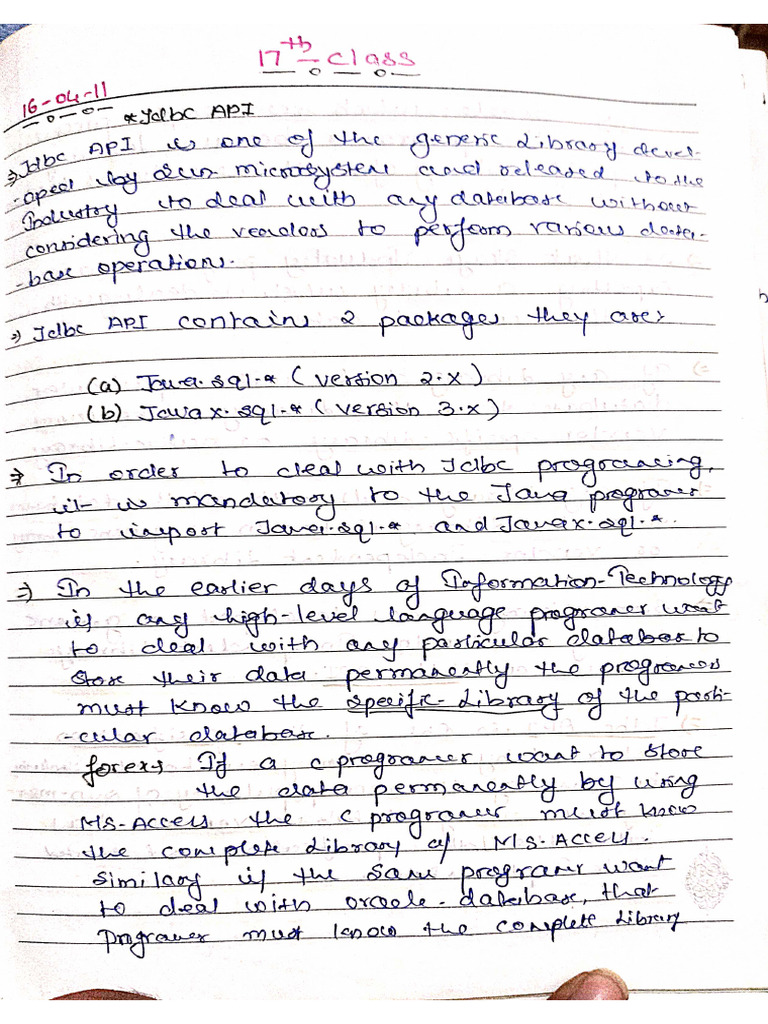 17th class
16-04-11
* Jdbc API
⇒ Jdbc API is one of the generic Library devel-
-oped by Sun microsystem and released to the
Industry to deal with any database without
considering the vendors to perform various data-
-base operations.
⇒ Jdbc API contains 2 packages they are:
(a) Java.sql.* (version 2.x)
(b) Javax.sql.* (version 3.x)
⇒ In order to deal with Jdbc programing,
it is mandatory to the Java programer
to import Java.sql.* and Javax.sql.*.
⇒ In the earlier days of Information-Technology
if any high-level language programer want
to deal with any particular database to
store their data permanently the programers
must know the specific Library of the parti-
-cular database.
forex, If a c programer want to store
the data permanently by using
MS-Access the c programer must know
the complete Library of MS.Access.
Similary if the same programer want
to deal with oracle-database, that
programer must know the complete Library